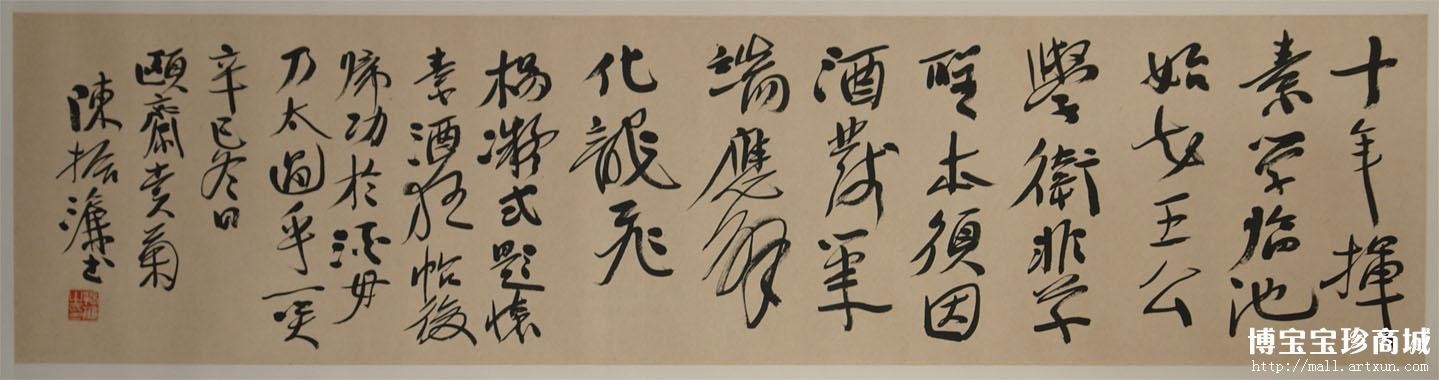 十年揮
素学臨池
始知王公
學衛非草
聖本須因
酒發筆
端應解
化龍飛
楊凝式題懷
素酒狂帖後
歸功於酒毋
乃太過乎一笑
辛巳冬日
頤齋賣菊
陳振濂書
博宝宝珍商城
http://mall.artxun.com